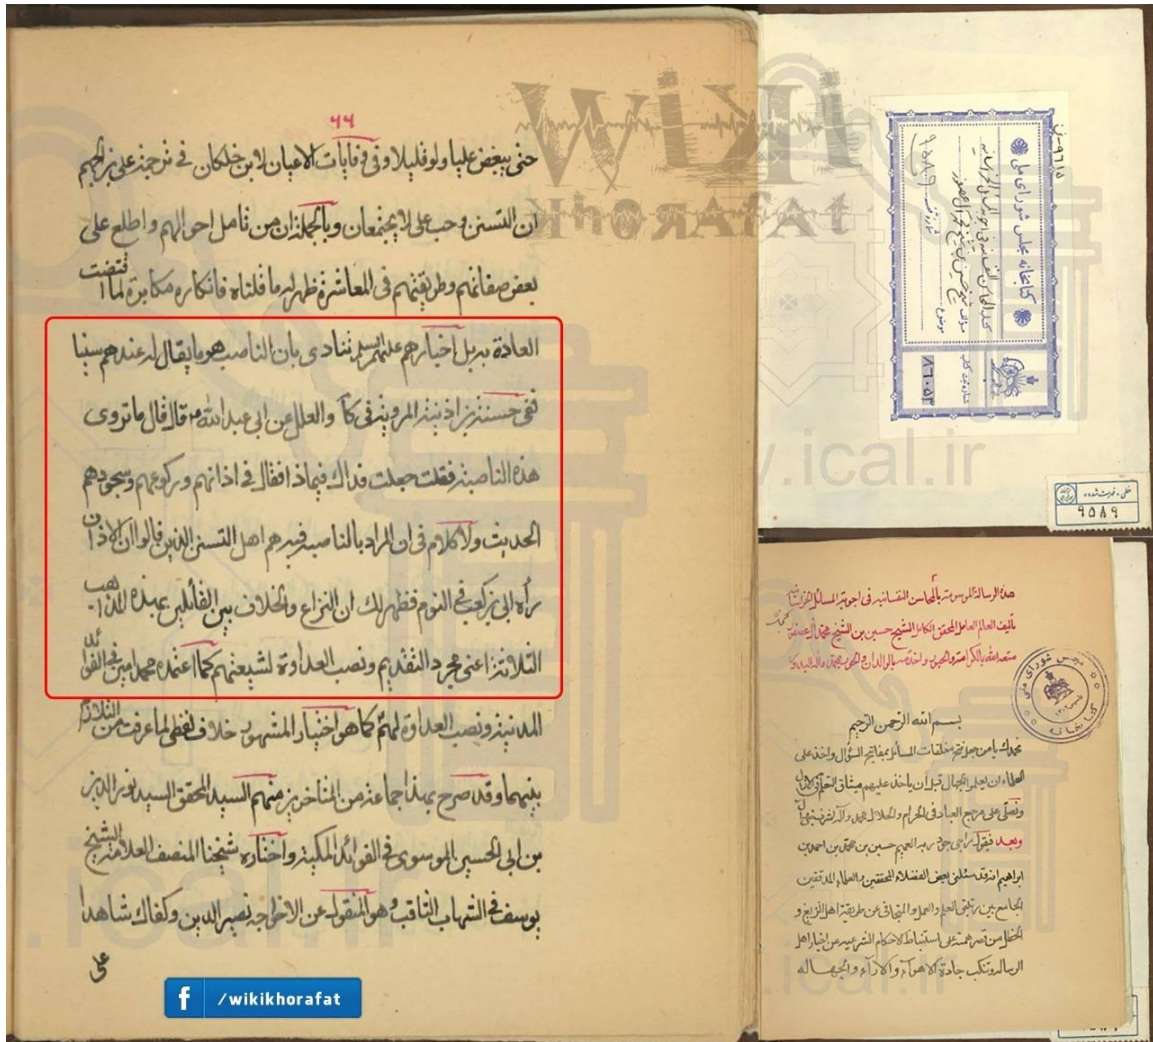 ۶۶
حتى يبغض عليا ولو قليلا وفي وفايات الاعيان لابن خلكان في ترجمة علي بن الجهم
ان التسنن وحب علي لا يجتمعان وبالجملة ان من تامل احوالهم واطلع على
بعض صفاتهم وطريقتهم في المعاشرة ظهر له ما قلناه فانكاره مكابرة لما اقتضت
العادة به بل اخبارهم عليهم السلم تنادي بان الناصب هو ما يقال له عندهم سنيا
ففي حسنة بن اذينة المروية في كا والعلل عن ابي عبد الله ع قال قال ما تروى
هذه الناصبة فقلت جعلت فداك فيما ذا فقال في اذانهم وركوعهم وسجودهم
الحديث ولا كلام في ان المراد بالناصبة فيه هم اهل التسنن الذين قالوا ان الاذان
رآه ابي بن كعب في النوم فظهر لك ان النزاع والخلاف بين القائلين بهذه المذاهب
الثلاثة اعني مجرد التقديم ونصب العداوة لشيعتهم كما اعتمده محمد امين في الفوائد
المدنية ونصب العداوة لهم كما هو اختيار المشهور خلاف لفظي لما عرفت من التلازم
بينهما وقد صرح بهذا جماعة من المتاخرين منهم السيد المحقق السيد نور الدين
بن ابي الحسين الموسوي في الفوائد المكية واختاره شيخنا المنصف العلامة الشيخ
يوسف في الشهاب الثاقب وهو المنقول عن الاخواجه نصير الدين وكفاك شاهدا
على
f /wikikhorafat
WiKi
KhORAFAt
ical.ir
۹۶۱۵-ف
کتابخانه مجلس شورای ملی
موضوع
شماره ثبت کتاب
۸۶۰۵۳
خطی - فهرست شده
۹۵۸۹
هذه الرسالة الموسومة بالمحاسن النفسانية في اجوبة المسائل الخراسانية
تأليف العالم العامل المحقق الكامل الشيخ حسين بن الشيخ محمد آل عصفور
بسم الله الرحمن الرحيم
نحمدك يا من جعل فتح مغلقات المسائل بمفاتيح السؤال واخذ على
العلماء ان يعلموا الجهال قبل ان ياخذ عليهم ميثاق التعلم
ونصلي على مرجع العباد في الحرام والحلال محمد وآله
وبعد فيقول راجي جود ربه العميم حسين بن محمد بن احمد بن
ابراهيم انه قد سئلني بعض الفضلاء المحققين والعلماء المدققين
الجامع بين رتبتي العلم والعمل والمتجافي عن طريقة اهل الزيغ و
الخطل من قصر همته على استنباط الاحكام الشرعيه من اخبار اهل
الرسالة وتنكب جادة الاهواء والآراء والجهاله
مجلس شورای ملی
کتابخانه